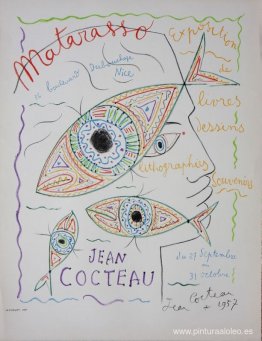 Matarasso
Exposition
de
livres
dessins
lithographies
souvenirs
boulevard Dubouchage
Nice
JEAN
COCTEAU
du 27 Septembre
au
31 octobre
Jean Cocteau
1957
www.pinturaaloleo.es